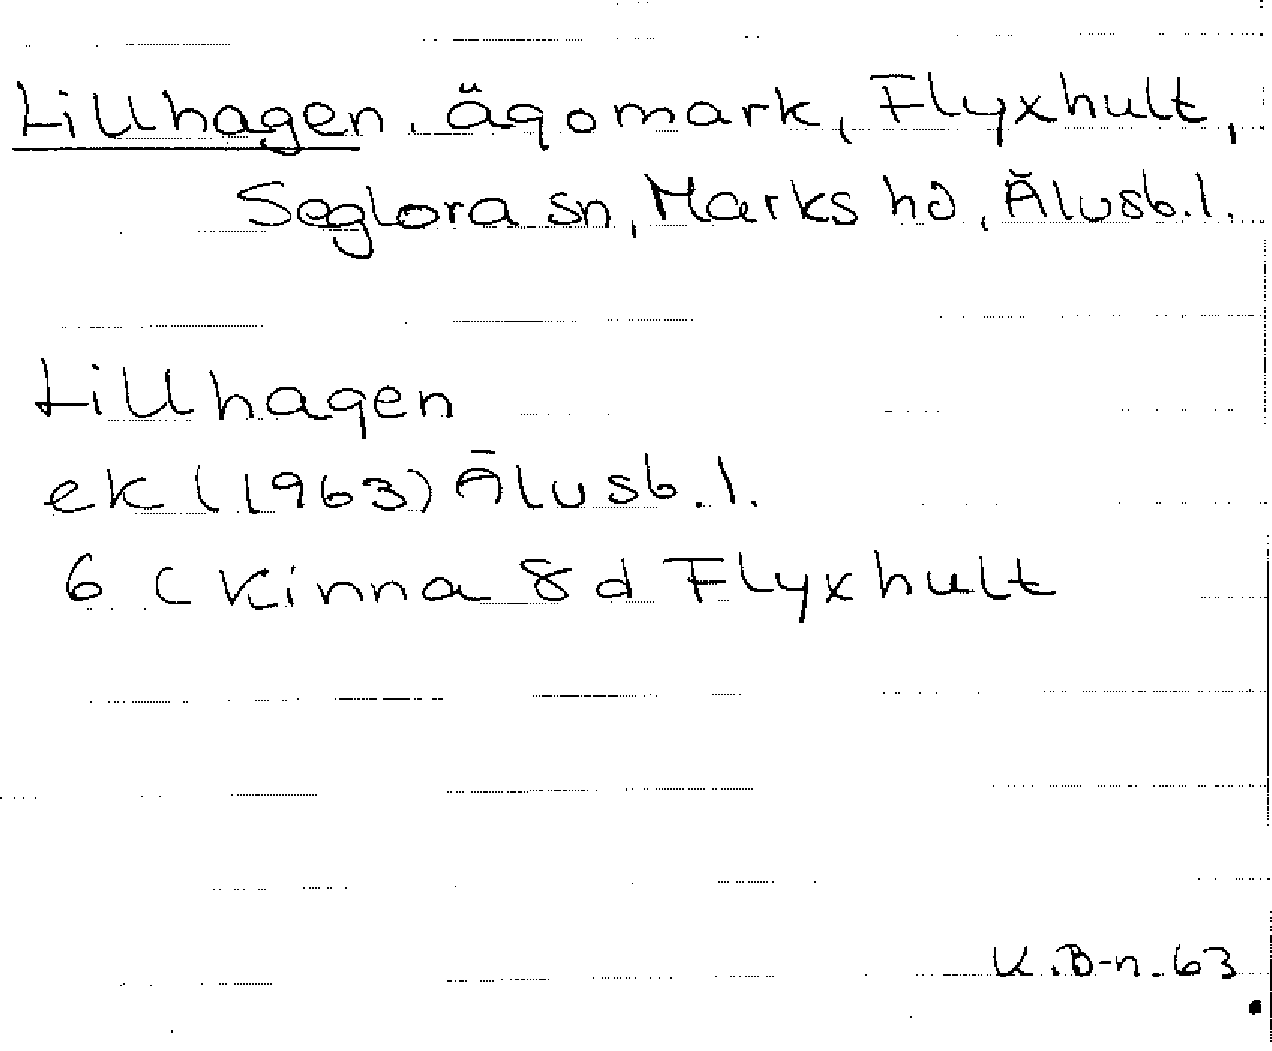 Lillhagen, ägomark, Flyxhult,
Seglora sn, Marks hd, Älvsb.l.
Lillhagen
ek (1963) Älvsb.l.
6 C Kinna 8 d Flyxhult
K.B-n. 63